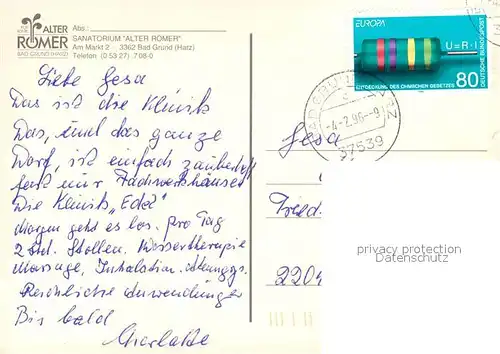 ALTER
RÖMER
BAD GRUND (HARZ)
Abs.:
SANATORIUM "ALTER RÖMER"
Am Markt 2 3362 Bad Grund (Harz)
Telefon (0 53 27) 7 08-0
Liebe Gesa
Das ist die Klinik
Das, und das ganze
Dorf, ist einfach zauberhaft
fast nur Fachwerkhäuser
Die Klinik, "Ecke"
Morgen geht es los. pro Tag
2 Std. Stollen. Wassertherapie
Massage, Inhalation.
Reichliche Anwendungen
Bis bald
Charlotte
EUROPA
U=R·I
80
DEUTSCHE BUNDESPOST
ENTDECKUNG DES OHMSCHEN GESETZES
-4.-2.96-9
37539
Gesa
Fried
2204
privacy protection
Datenschutz